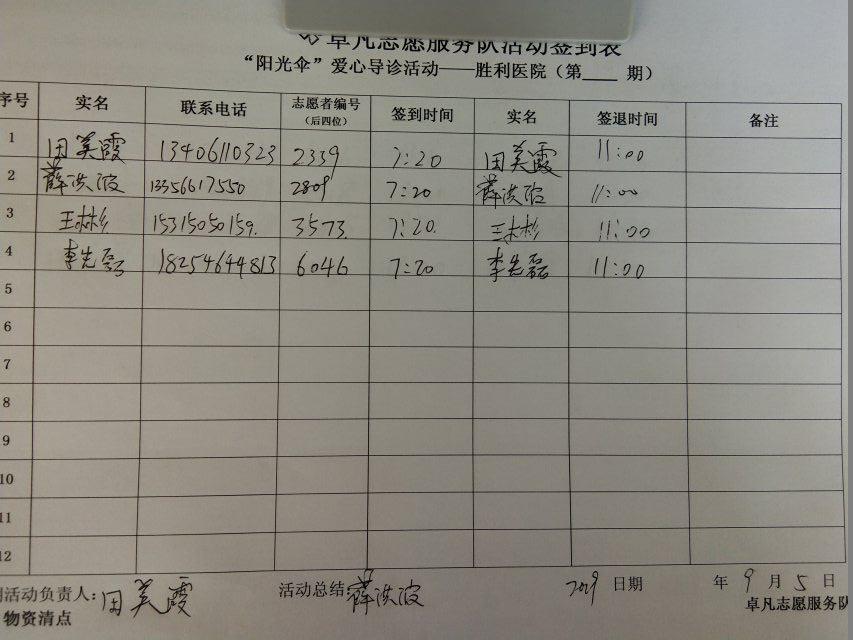 卓凡志愿服务队活动签到表
“阳光伞”爱心导诊活动——胜利医院（第____ 期）
序号 实名 联系电话 志愿者编号（后四位） 签到时间 实名 签退时间 备注
1 田美霞 13406110323 2339 7:20 田美霞 11:00
2 薛洪波 13356617550 2809 7:20 薛洪波 11:00
3 王彬彬 15315050159. 3573. 7:20. 王彬彬 11:00
4 李先磊 18254644813 6046 7:20 李先磊 11:00
5
6
7
8
9
10
11
12
活动负责人：田美霞 活动总结 薛洪波 2019 日期 年 9 月 5 日
物资清点 卓凡志愿服务队